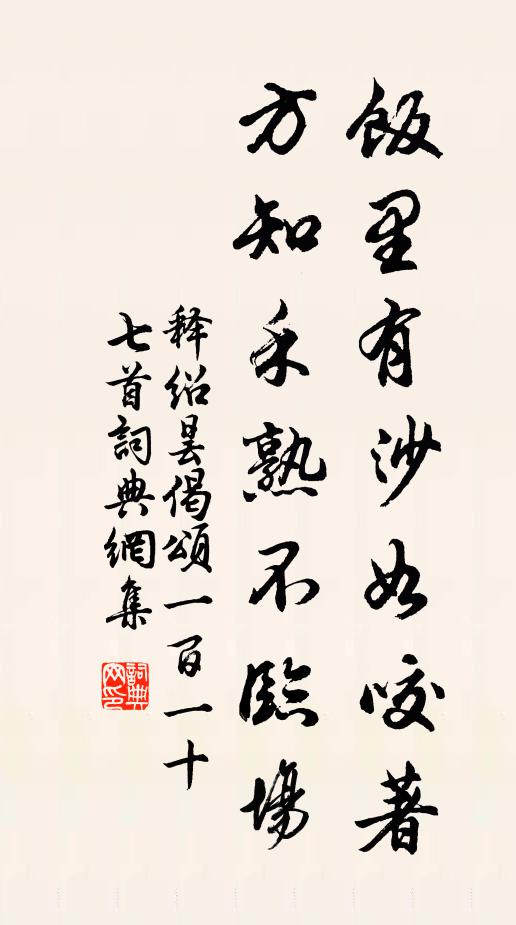 飯里有沙如咬著
方知禾熟不臨場
释紹曇偈頌一百一十
七首詞典網集
詞典网印